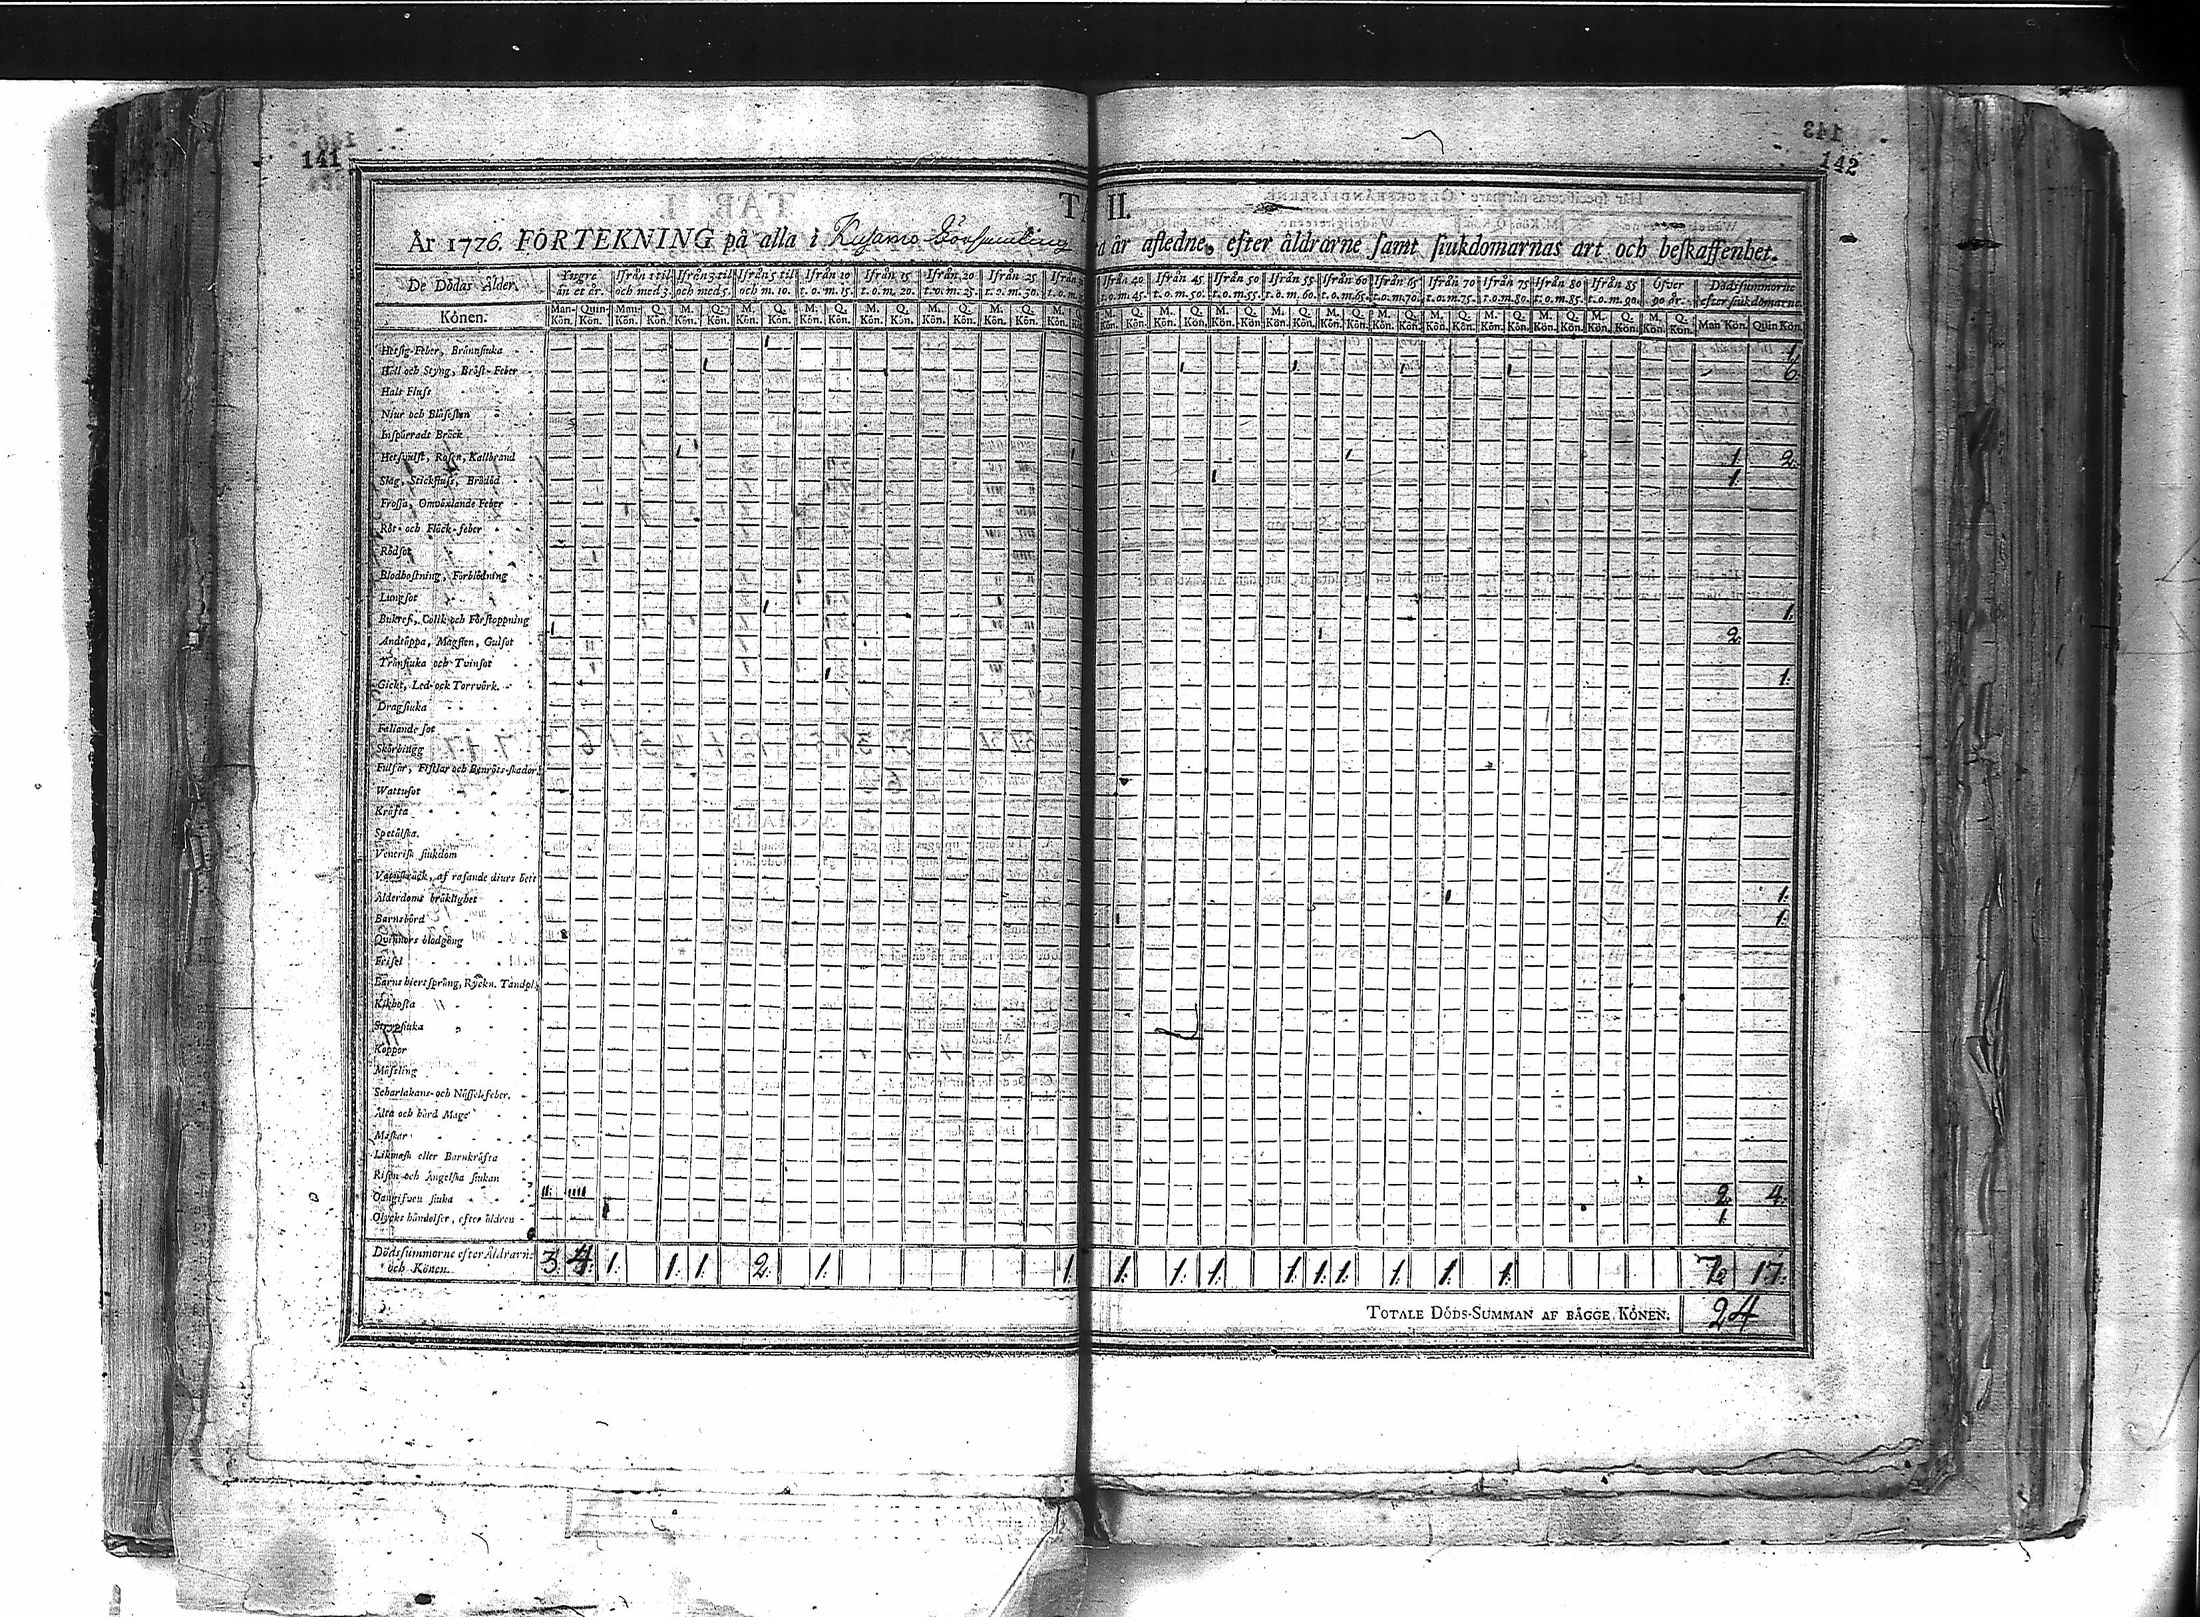 141
142
143
TAB. II.
År 1776. FÖRTEKNING på alla i Kusamo Församling
år afledne, efter åldrarne samt siukdomarnas art och beskaffenhet.
De Dödas Ålder. Yngre än et år. Ifrån 1 til och med 3. Ifrån 3 til och med 5. Ifrån 5 til och m. 10. Ifrån 10 t. o. m. 15. Ifrån 15 t. o. m. 20. Ifrån 20 t. o. m. 25. Ifrån 25 t. o. m. 30. Ifrån 40 t. o. m. 45. Ifrån 45 t. o. m. 50. Ifrån 50 t. o. m. 55. Ifrån 55 t. o. m. 60. Ifrån 60 t. o. m. 65. Ifrån 65 t. o. m. 70. Ifrån 70 t. o. m. 75. Ifrån 75 t. o. m. 80. Ifrån 80 t. o. m. 85. Ifrån 85 t. o. m. 90. Öfver 90 år. Dödssummorne efter siukdomarne.
Könen. Man-Kön. Quin-Kön. Man-Kön. Q. Kön. M. Kön. Q. Kön. M. Kön. Q. Kön. M. Kön. Q. Kön. M. Kön. Q. Kön. M. Kön. Q. Kön. M. Kön. Q. Kön. Man Kön. Quin Kön.
Hetsig-Feber, Brännsiuka 1 1.
Håll och Styng, Bröst-Feber 1 1 1 1 1 6.
Hals Fluss
Niur och Blåsesten
Inspärradt Bräck
Hetsvulst, Rosen, Kallbrand 1 1 1 1. 2.
Slag, Stickfluss, Brådöd 1 1.
Frossa, Omväxlande Feber
Röt- och Fläck-feber
Rödsot
Blodhostning, Förblödning
Lungsot
Bukref, Colik och Förstoppning 1 1.
Andtäppa, Magsten, Gulsot 1 1 2.
Trånsiuka och Tvinsot
Gickt, Led- ock Torrvärk. 1 1.
Dragsiuka
Fallande sot
Skörbiugg
Fulsår, Fistlar och Benröts-skador
Wattusot
Kräfta
Spetälska.
Venerisk siukdom
Vatuskräck, af rasande diurs bett
Ålderdoms bräklighet 1 1.
Barnsbörd 1 1.
Qvinnors blodgång
Frisel
Barns hiertsprång, Ryckn. Tandpl.
Kikhosta
Strypsiuka
Koppor
Mässling
Scharlakans- och Nässelfeber.
Älta och hård Mage
Maskar
Likmask eller Barnkräfta
Risen och Ängelska siukan
Oangifven siuka II: IIII 2. 4.
Olycks händelser, efter åldren 1 1.
Dödssummorne efter Åldrarne och Könen. 3. 4. 1. 1. 1. 2. 1. 1. 1. 1. 1. 1. 1. 1. 1. 1. 1. 7. 17.
TOTALE DÖDS-SUMMAN AF BÄGGE KÖNEN. 24